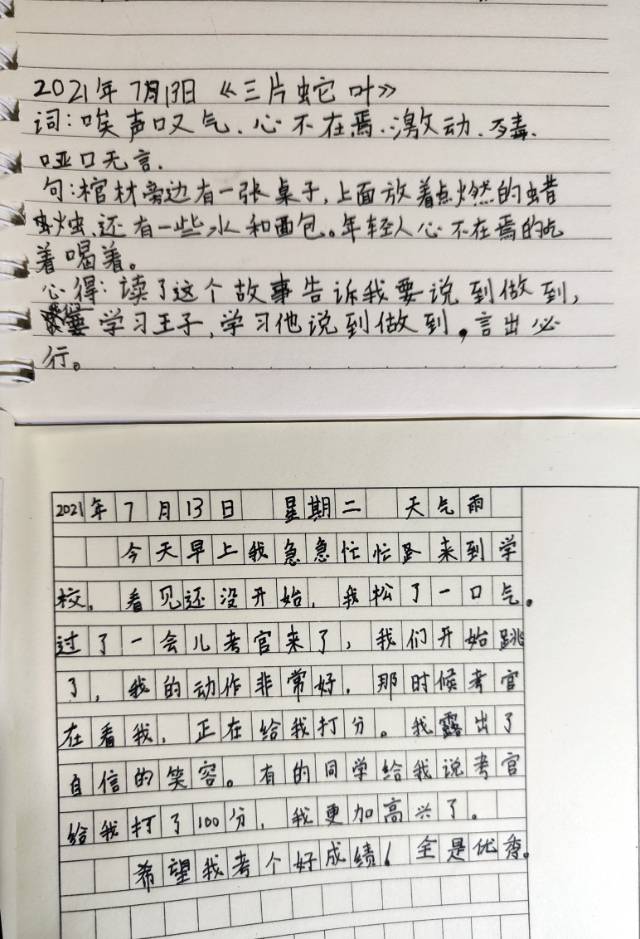 2021年7月13日《三片蛇叶》
词:唉声叹气、心不在焉、激动、歹毒、
哑口无言.
句:棺材旁边有一张桌子,上面放着点燃的蜡
虫烛,还有一些水和面包。年轻人心不在焉的吃
着喝着。
心得:读了这个故事告诉我要说到做到,
学习王子,学习他说到做到,言出必
行。
2021年7月13日 星期二 天气雨
今天早上我急急忙忙跑来到学
校,看见还没开始,我松了一口气。
过了一会儿考官来了,我们开始跳
了,我的动作非常好,那时候考官
在看我,正在给我打分。我露出了
自信的笑容。有的同学给我说考官
给我打了100分,我更加高兴了。
希望我考个好成绩!全是优秀。